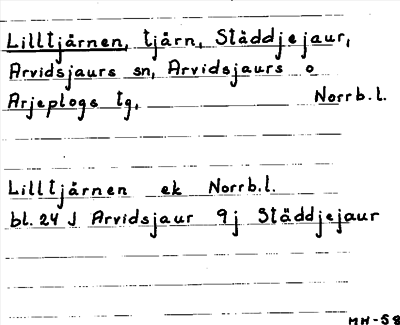 Lilltjärnen, tjärn, Ståddjejaur,
Arvidsjaurs sn, Arvidsjaurs o
Arjeplogs tg, Norrb.l.
Lilltjärnen ek Norrb.l.
bl. 24 J Arvidsjaur 9j Städdjejaur
MH-58